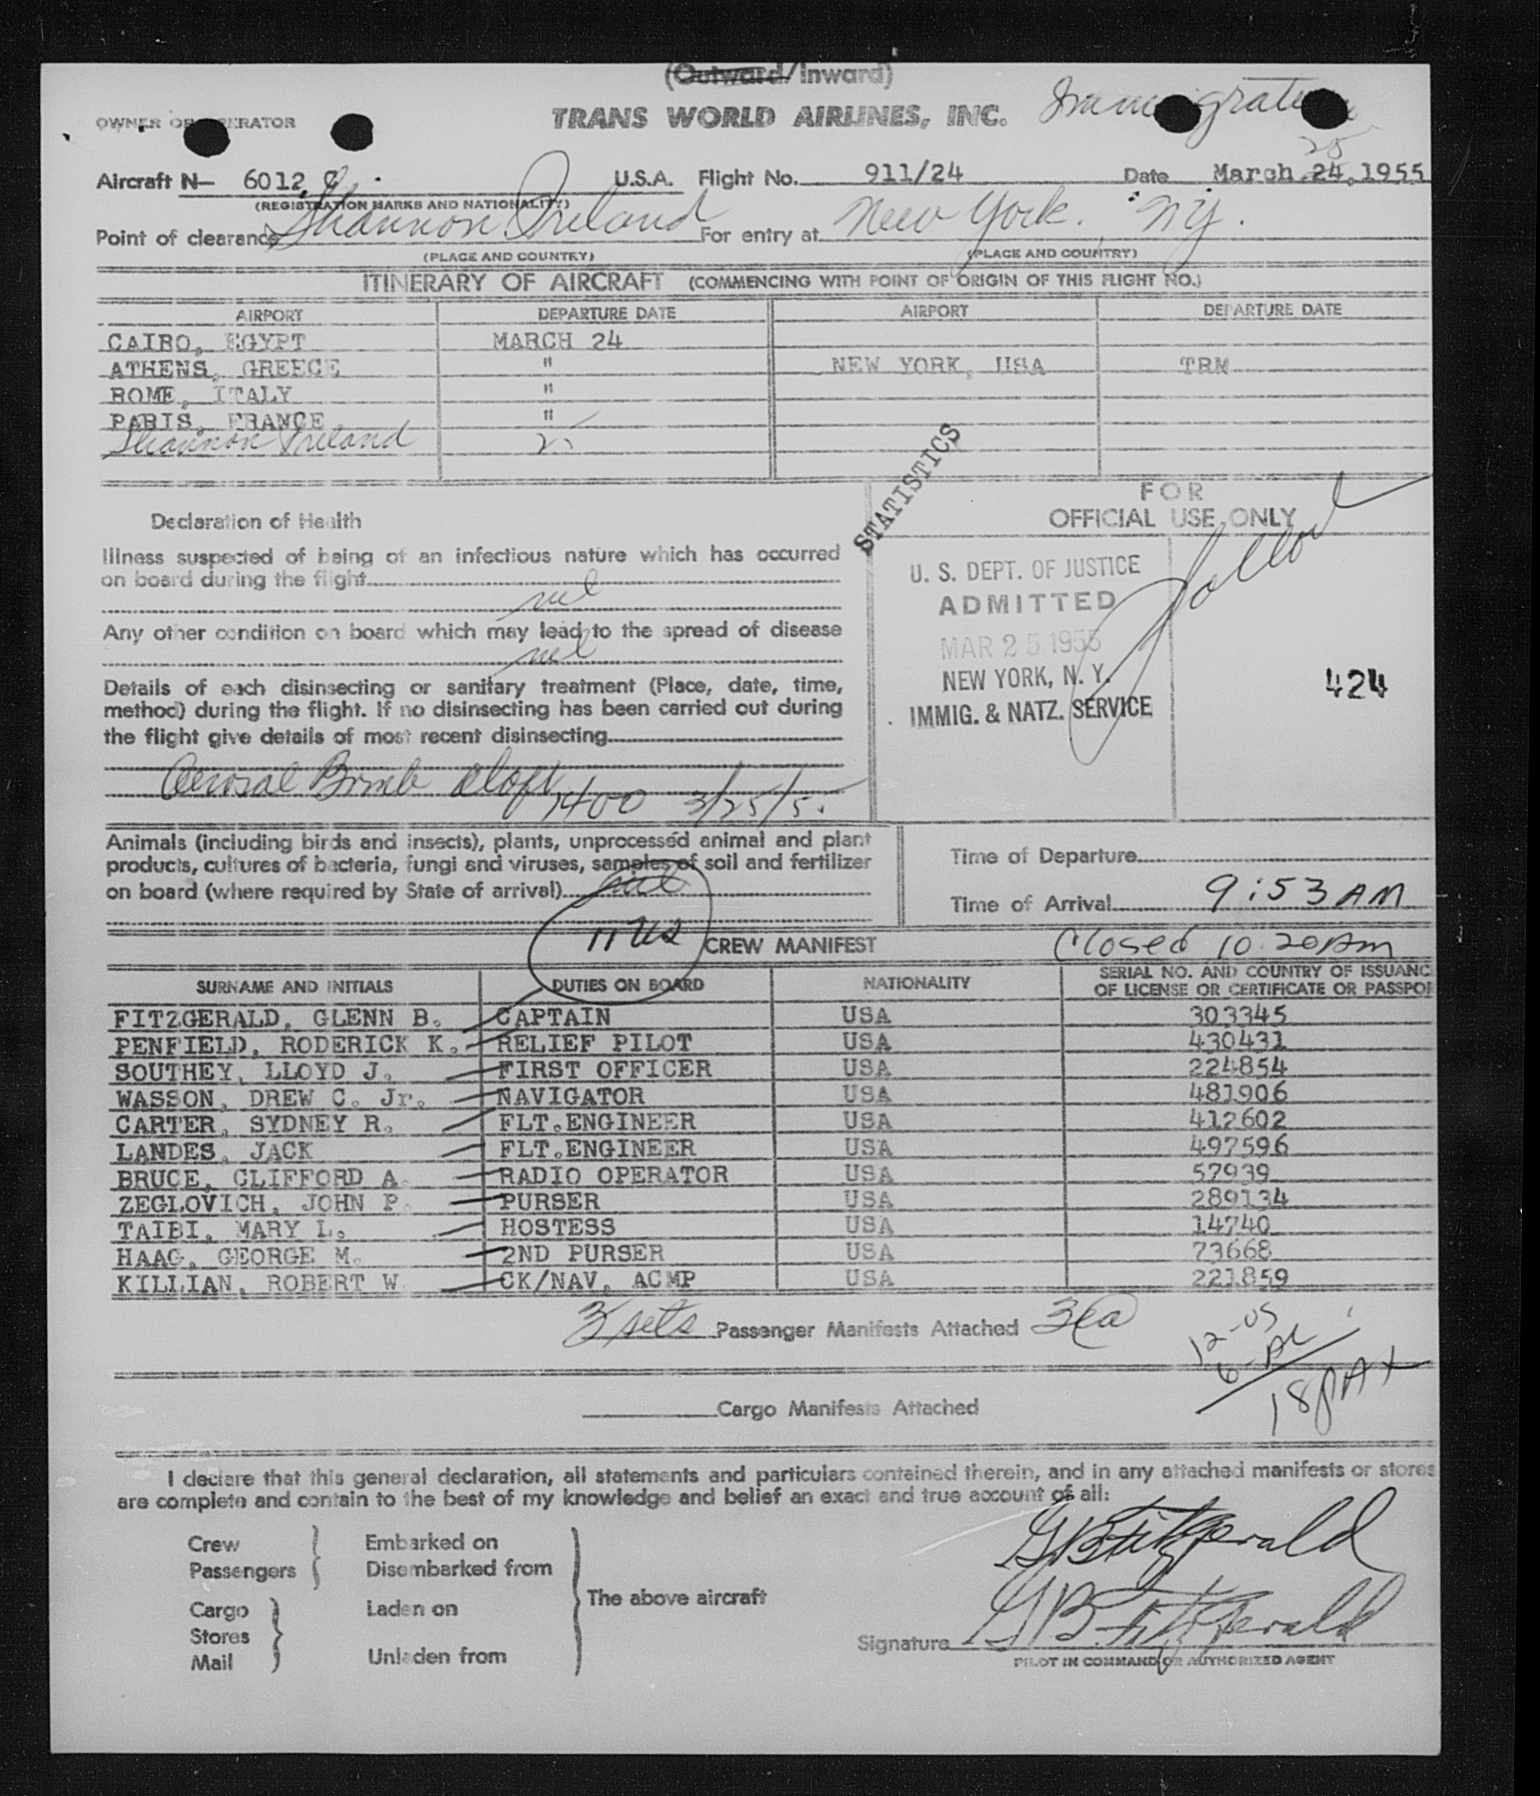 (Outward/Inward)
OWNER OR OPERATOR TRANS WORLD AIRLINES, INC. Immigration
25
Aircraft N— 6012 C U.S.A. Flight No. 911/24 Date March 24, 1955
(REGISTRATION MARKS AND NATIONALITY)
Point of clearance Shannon, Ireland For entry at New York, NY.
(PLACE AND COUNTRY) (PLACE AND COUNTRY)
ITINERARY OF AIRCRAFT (COMMENCING WITH POINT OF ORIGIN OF THIS FLIGHT NO.)
AIRPORT DEPARTURE DATE AIRPORT DEPARTURE DATE
CAIRO, EGYPT MARCH 24
ATHENS, GREECE " NEW YORK, USA TRM
ROME, ITALY "
PARIS, FRANCE "
Shannon Ireland 25
STATISTICS
FOR
OFFICIAL USE ONLY
Declaration of Health
Illness suspected of being of an infectious nature which has occurred
on board during the flight
nil
Any other condition on board which may lead to the spread of disease
nil
Details of each disinsecting or sanitary treatment (Place, date, time,
method) during the flight. If no disinsecting has been carried out during
the flight give details of most recent disinsecting
Aerosal Bomb aloft 1400 3/25/55
U. S. DEPT. OF JUSTICE
ADMITTED
MAR 25 1955
NEW YORK, N. Y.
IMMIG. & NATZ. SERVICE
424
Animals (including birds and insects), plants, unprocessed animal and plant
products, cultures of bacteria, fungi and viruses, samples of soil and fertilizer
on board (where required by State of arrival) nil
Time of Departure
Time of Arrival 9:53 AM
11 US CREW MANIFEST Closed 10:20AM
SURNAME AND INITIALS DUTIES ON BOARD NATIONALITY SERIAL NO. AND COUNTRY OF ISSUANC
OF LICENSE OR CERTIFICATE OR PASSPOR
FITZGERALD, GLENN B. CAPTAIN USA 303345
PENFIELD, RODERICK K. RELIEF PILOT USA 430431
SOUTHEY, LLOYD J. FIRST OFFICER USA 224854
WASSON, DREW C. Jr. NAVIGATOR USA 481906
CARTER, SYDNEY R. FLT.ENGINEER USA 412602
LANDES, JACK FLT.ENGINEER USA 497596
BRUCE, CLIFFORD A. RADIO OPERATOR USA 57939
ZEGLOVICH, JOHN P. PURSER USA 289134
TAIBI, MARY L. HOSTESS USA 14740
HAAG, GEORGE M. 2ND PURSER USA 73668
KILLIAN, ROBERT W. CK/NAV, ACMP USA 221859
3 sets Passenger Manifests Attached 3
12-US
6-AL
18 PAX
Cargo Manifests Attached
I declare that this general declaration, all statements and particulars contained therein, and in any attached manifests or stores
are complete and contain to the best of my knowledge and belief an exact and true account of all:
GBFitzgerald
Crew Embarked on
Passengers Disembarked from
The above aircraft
Cargo Laden on
Stores
Mail Unladen from
Signature GBFitzgerald
PILOT IN COMMAND OR AUTHORIZED AGENT